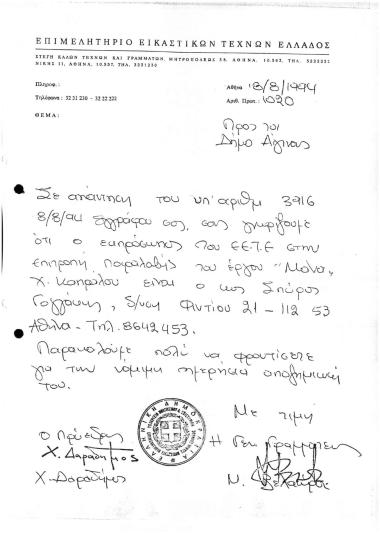 ΕΠΙΜΕΛΗΤΗΡΙΟ ΕΙΚΑΣΤΙΚΩΝ ΤΕΧΝΩΝ ΕΛΛΑΔΟΣ
ΣΤΕΓΗ ΚΑΛΩΝ ΤΕΧΝΩΝ ΚΑΙ ΓΡΑΜΜΑΤΩΝ, ΜΗΤΡΟΠΟΛΕΩΣ 38, ΑΘΗΝΑ, 10.563, ΤΗΛ.
ΝΙΚΗΣ 11, ΑΘΗΝΑ, 10.557, ΤΗΛ. 3231230
Πληροφ.:
Αθήνα 18/8/1994
Τηλέφωνα: 32 31 230 - 32 22 222
Αριθ. Πρωτ.: 1020
ΘΕΜΑ:
Προς τον
Δήμο Αίγινας
Σε απάντηση του υπ' αριθμ 3916
8/8/94 εγγράφου σας, σας γνωρίζουμε
ότι ο εκπρόσωπος του ΕΕΤΕ στην
επιτροπή παραλαβής του έργου "Μάνα"
Χ. Καπράλου είναι ο κος Σπύρος
Γόγγακης, δ/νση Φιντίου 21 - 112 53
Αθήνα - Τηλ. 8642453.
Παρακαλούμε πολύ να φροντίσετε
για την νόμιμη ημερήσια αποζημίωσή
του.
Με τιμή
Ο Πρόεδρος
Η Γεν. Γραμματεύς
Χ. Δαραδήμος
ΕΛΛΗΝΙΚΗ ΔΗΜΟΚΡΑΤΙΑ
Χ. Δαραδήμος
Ν.